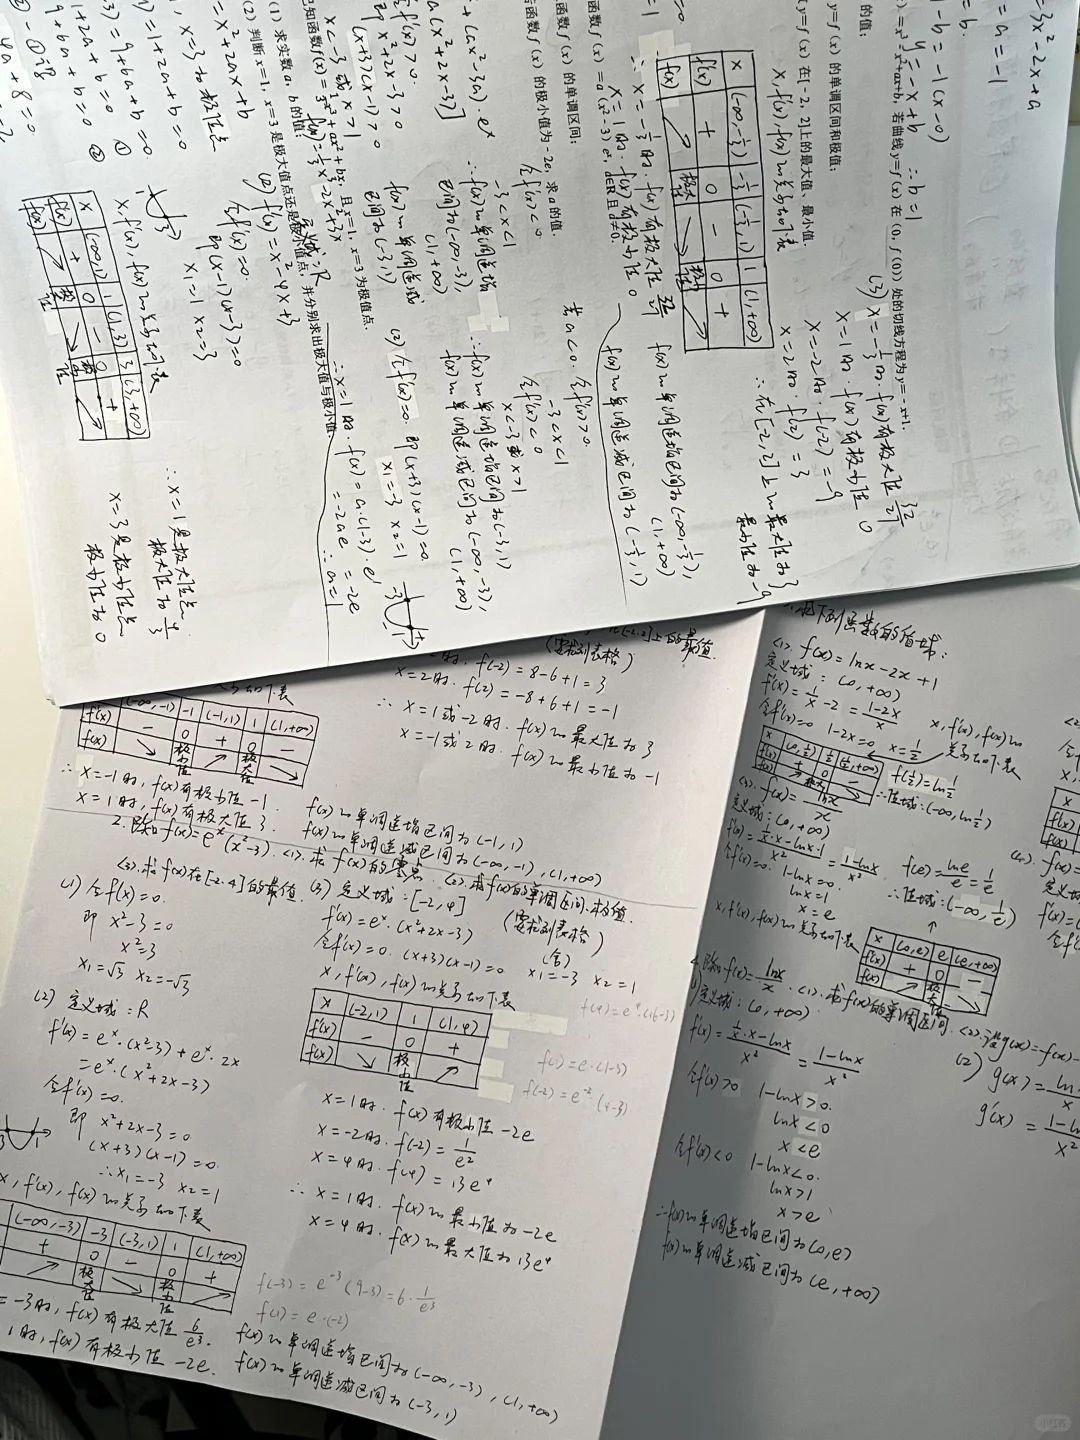 =3x²-2x+a
=a=-1
=b.
1-b=-1(x-0)
y=-x+b ∴b=1
=x³-x²+ax+b, 若曲线y=f(x)在(0, f(0))处的切线方程为y=-x+1.
的值;
y=f(x)的单调区间和极值;
y=f(x)在[-2, 2]上的最大值, 最小值.
x, f'(x), f(x)的关系如下表
x (-∞,-1/3) -1/3 (-1/3,1) 1 (1,+∞)
f'(x) + 0 - 0 +
f(x) ↗ 极大值 ↘ 极小值 ↗
∴x=-1/3时. f(x)有极大值 32/27
x=1时. f(x)有极小值 0
f(x)的单调递增区间为(-∞,-1/3),
(1,+∞)
f(x)的单调递减区间为(-1/3,1)
(3) x=-1/3时. f(x)有极大值 32/27
x=1时. f(x)有极小值 0
x=-2时. f(-2)=-9
x=2时. f(2)=3
∴在[-2,2]上的最大值为3
最小值为-9
函数f(x)=a(x²-3)eˣ, a∈R且a≠0.
函数f(x)的单调区间;
函数f(x)的极小值为-2e, 求a的值.
+(ax²-3a)·eˣ
a(x²+2x-3)
令f'(x)>0.
即 x²+2x-3>0
(x+3)(x-1)>0
x<-3 或 x>1
令f'(x)<0.
-3<x<1
∴f(x)的单调递增
区间为(-∞,-3),
(1,+∞)
f(x)的单调递减
区间为(-3,1)
若a<0. 令f'(x)>0.
-3<x<1
令f'(x)<0
x<-3或x>1
∴f(x)的单调递增区间为(-3,1)
f(x)的单调递减区间为(-∞,-3),
(1,+∞)
(2) 令f'(x)=0. 即(x+3)(x-1)=0
x₁=-3 x₂=1
∴x=1时. f(x)=a·(1-3)·e¹
=-2ae =-2e
∴a=1
已知函数f(x)=1/3x³+ax²+bx, 且x=1, x=3为极值点.
(1) 求实数a, b的值;
(2) 判断x=1, x=3是极大值点还是极小值点, 并分别求出极大值与极小值.
f(x)=1/3x³-2x²+3x
定义域:R
=x²+2ax+b
x=3为极值点
)=1+2a+b=0
3)=9+6a+b=0
1+2a+b=0 ①
9+6a+b=0 ②
②-①得
4a+8=0
(2) f'(x)=x²-4x+3
令f'(x)=0.
即(x-1)(x-3)=0
x₁=1 x₂=3
x, f'(x), f(x)的关系如下表
x (-∞,1) 1 (1,3) 3 (3,+∞)
f'(x) + 0 - 0 +
f(x) ↗ 极大值 ↘ 极小值 ↗
∴x=1是极大值点
极大值为4/3
x=3是极小值点
极小值为0
在[-2,2]上的最值.
(要求列表格)
f(-2)=8-6+1=3
x=2时. f(2)=-8+6+1=-1
∴x=1或-2时. f(x)的最大值为3
x=-1或2时. f(x)的最小值为-1
(-∞,-1) -1 (-1,1) 1 (1,+∞)
f'(x) - 0 + 0 -
f(x) ↘ 极小值 ↗ 极大值 ↘
∴x=-1时, f(x)有极小值-1.
x=1时, f(x)有极大值3.
f(x)的单调递增区间为(-1,1)
f(x)的单调递减区间为(-∞,-1),(1,+∞)
2. 已知f(x)=eˣ(x²-3). <1>. 求f(x)的零点 <2>. 求f(x)的单调区间、极值.
<3>. 求f(x)在[-2,4]的最值. (要求列表格)
(1) 令f(x)=0.
即 x²-3=0
x²=3
x₁=√3 x₂=-√3
(2) 定义域:R
f'(x)=eˣ·(x²-3)+eˣ·2x
=eˣ·(x²+2x-3)
令f'(x)=0.
即 x²+2x-3=0
(x+3)(x-1)=0
∴x₁=-3 x₂=1
x, f'(x), f(x)的关系如下表
(-∞,-3) -3 (-3,1) 1 (1,+∞)
+ 0 - 0 +
↗ 极大值 ↘ 极小值 ↗
=-3时, f(x)有极大值 6/e³.
1时, f(x)有极小值 -2e.
f(x)的单调递增区间为(-∞,-3),(1,+∞)
f(x)的单调递减区间为(-3,1)
f(-3)=e⁻³(9-3)=6·1/e³
f(1)=e·(-2)
(3) 定义域:[-2,4]
f'(x)=eˣ·(x²+2x-3)
令f'(x)=0. (x+3)(x-1)=0 x₁=-3 (舍) x₂=1
x, f'(x), f(x)的关系如下表
x (-2,1) 1 (1,4)
f'(x) - 0 +
f(x) ↘ 极小值 ↗
f(4)=e⁴·(16-3)
f(1)=e·(1-3)
f(-2)=e⁻²·(4-3)
x=1时. f(x)有极小值-2e
x=-2时. f(-2)=1/e²
x=4时. f(4)=13e⁴
∴x=1时. f(x)的最小值为-2e
x=4时. f(x)的最大值为13e⁴
求下列函数的值域:
<1>. f(x)=lnx-2x+1
定义域:(0,+∞)
f'(x)=1/x-2=(1-2x)/x
令f'(x)=0 1-2x=0 x=1/2
x, f'(x), f(x)的关系如下表
x (0,1/2) 1/2 (1/2,+∞)
f'(x) + 0 -
f(1/2)=ln1/2
∴值域:(-∞,ln1/2)
f(x)=lnx/x
定义域:(0,+∞)
f'(x)=(1/x·x-lnx·1)/x²=(1-lnx)/x²
令f'(x)=0. 1-lnx=0.
lnx=1
x=e
f(e)=lne/e=1/e
∴值域:(-∞,1/e)
x, f'(x), f(x)的关系如下表
x (0,e) e (e,+∞)
f'(x) + 0 -
f(x) ↗ 极大值 ↘
4. 已知f(x)=lnx/x. <1>. 求f(x)的单调区间. <2>. 设g(x)=f(x)-
定义域:(0,+∞)
f'(x)=(1/x·x-lnx)/x²=(1-lnx)/x²
令f'(x)>0 1-lnx>0.
lnx<0
x<e
令f'(x)<0 1-lnx<0.
lnx>1
x>e
∴f(x)的单调递增区间为(0,e)
f(x)的单调递减区间为(e,+∞)
(2) g(x)=
g'(x)=
小红书